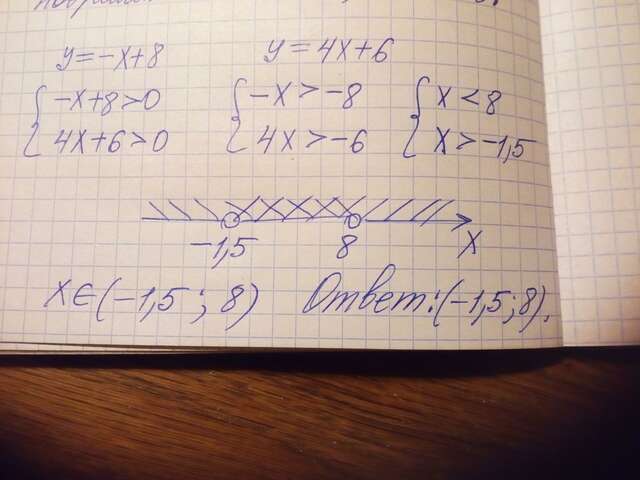 y=-x+8 y=4x+6
{-x+8>0 {-x>-8 {x<8
{4x+6>0 {4x>-6 {x>-1,5
-1,5 8 x
x∈(-1,5; 8) Ответ:(-1,5;8).